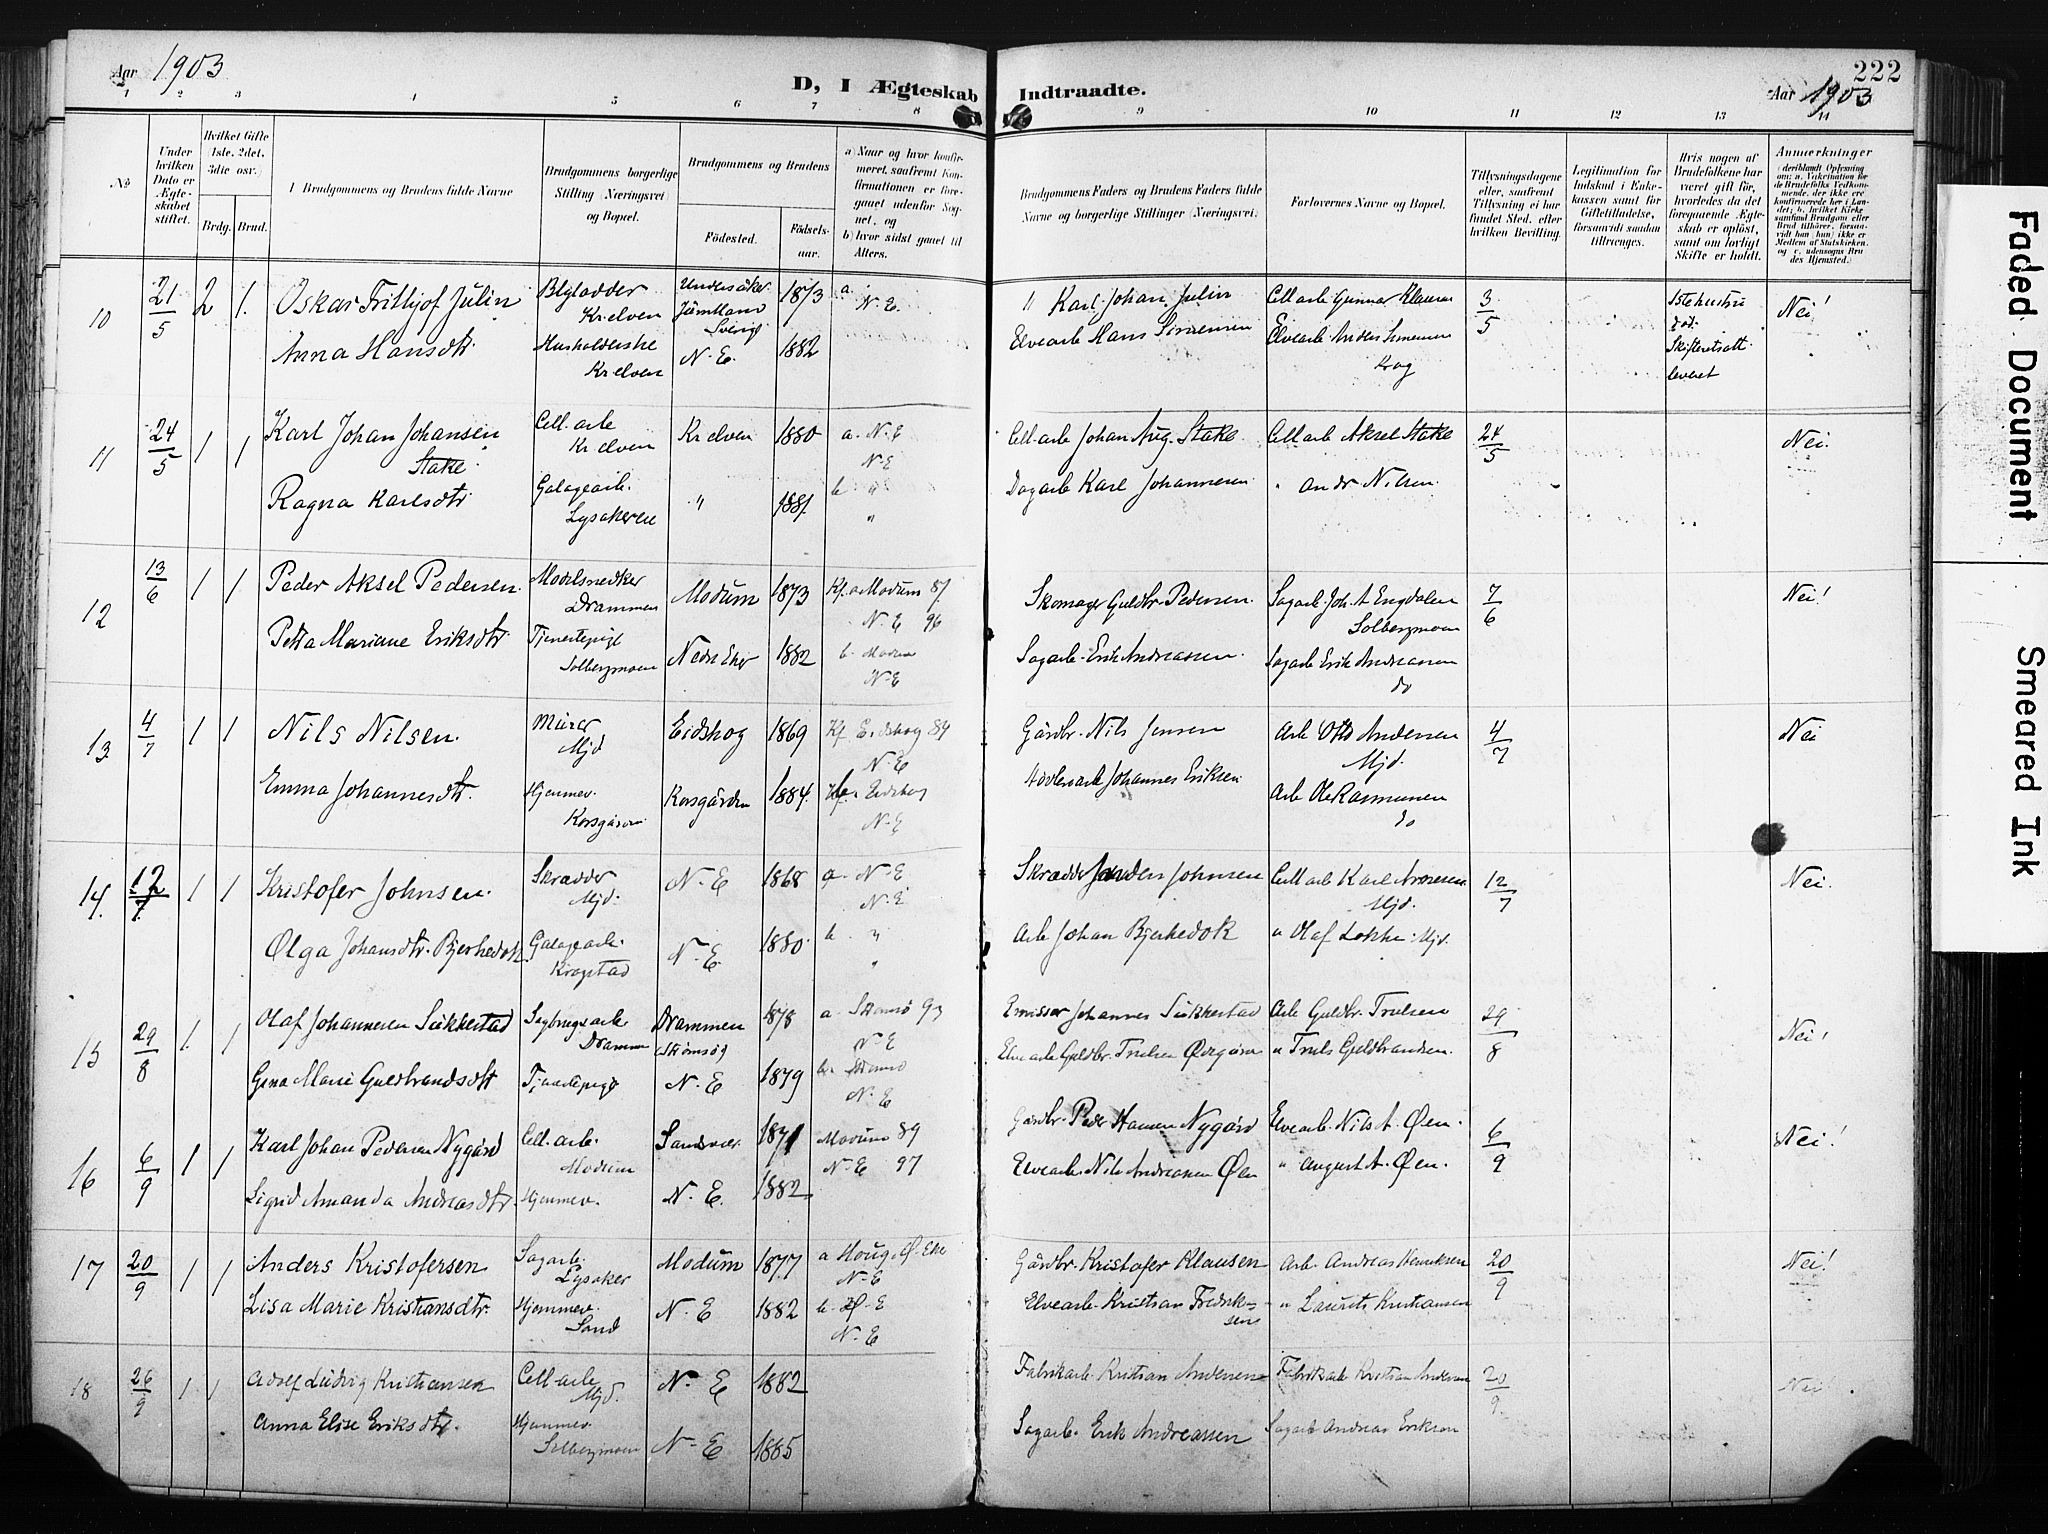 Aar 1903
D, I Ægteskab Indtraadte.
222
Aar 1903
1 2 3 4 5 6 7 8 9 10 11 12 13 14
No
Under hvilken Dato er Ægteskabet stiftet.
Hvilket Gifte (1ste, 2det, 3die osv.)
Brdg. Brud.
Brudgommens og Brudens fulde Navne
Brudgommens borgerlige Stilling (Næringsvei) og Bopæl.
Brudgommens og Brudens
Fødested.
Fødselsaar.
a) Naar og hvor konfirmeret, saafremt Konfirmationen er foregaaet udenfor Sognet, og
b) hvor sidst gaaet til Alters.
Brudgommens Faders og Brudens Faders fulde Navne og borgerlige Stillinger (Næringsvei).
Forlovernes Navne og Bopæl.
Tillysningsdagene eller, saafremt Tillysning ei har fundet Sted, efter hvilken Bevilling.
Legitimation for Indskud i Enkekassen samt for Giftetilladelse, forsaavidt saadan tiltrænges.
Hvis nogen af Brudefolkene har været gift før, hvorledes da det foregaaende Ægteskab er opløst, samt om lovligt Skifte er holdt.
Anmærkninger
10 21/5 2 1. Oskar Frithjof Julin Kr.elven Undersåker Jämtland Sverige 1873 a N.E. Karl Johan Julin Cell.arb Gunnar 3/5 1ste hustru død. Nei!
Anna Hansdtr. Husholderske Kr.elven N.E. 1882 Elvearb Hans Simensen Elvearb Anders Simensen Krog Skifteretsatt leveret
11 24/5 1 1 Karl Johan Johansen Stake Cell.arb Kr.elven Kr.elven 1880 a. N.E N.E Cell.arb Johan Aug. Stake Cell.arb Aksel Stake 24/5 Nei.
Ragna Karlsdtr. Galagearb. Lysakeren " 1881. b " " Dagarb Karl Johannesen " Andr Nilsen
12 13/6 1 1 Peder Aksel Pedersen Modelsnedker Drammen Modum 1873 Kf. a Modum 87 N.E 96 Skomager Guldbr. Pedersen Sagarb. Joh. A Engdalen Solbergmoen 7/6 Nei!
Petra Mariane Eriksdtr. Tjenestepige Solbergmoen Nedre Eker 1882 b. Modum N.E Sagarb. Erik Andreassen. Sagarb Erik Andreassen do
13 4/7 1 1 Nils Nilsen. Murer Mjd Eidskog 1869 Kf. Eidskog 84 N.E Gårdbr. Nils Jensen Arb. Otto Andersen Mjd. 4/7 Nei
Emma Johannesdtr. Hjemmev. Korsgården Korsgården 1884. Eidskog N.E Johannes Eriksen Arb Ole Rasmussen do
14. 12/7 1 1 Kristofer Johnsen. Skrædder Mjd. N.E 1868 a. N.E N.E Skrædder Anders Johnsen Cell.arb Karl Mjd. 12/7 Nei.
Olga Johansdtr. Bjerkedok Galagearb. Krogstad N.E. 1880. b " " Arb Johan Bjerkedok " Olaf Løkke Mjd.
15 29/8 1. 1 Olaf Johannesen Sukkestad Sagbrugsarb Drammen Drammen Strømsøg 1878 a Strømsø 93 N.E Emissær Johannes Sukkestad Arb Guldbr. Trulsen 29/8 Nei!
Gina Marie Guldbrandsdtr Tjenestepige N.E 1879 b. Strømsø N.E Elvearb Guldbr. Trulsen " Truls Guldbrandsen.
16 6/9 1 1 Karl Johan Pedersen Nygård Cell.arb. Modum Sandsvær 1871 Modum 89 N.E 97 Gårdbr. Peder Hansen Nygård Elvearb. Nils A. Øen. 6/9 Nei!
Sigrid Amanda Andreasdtr. Hjemmev. N.E. 1882 Elvearb. Nils Andreasen Øen " August A. Øen.
17 20/9 1 1 Anders Kristofersen Sagarb. Lysaker Modum 1877 a Houg. Ø. Eke N.E Gårdbr. Kristofer Klausen Arb. Andreas Henriksen 20/9 Nei!
Lisa Marie Kristiansdtr. Hjemmev. Sand N.E 1882 b N.E Elvearb. Kristian Fredriksen " Laurits Kristiansen
18 26/9 1 1 Adolf Ludvig Kristiansen Cell.arb Mjd. N.E 1882 Fabrikarb Kristian Andersen Fabrikarb Kristian Andersen 20/9. Nei!
Anna Elise Eriksdtr. Hjemmev. Solbergmoen N.E 1885 Sagarb. Erik Andreassen Sagarb Andreas Eriksen
Faded Document
Smeared Ink